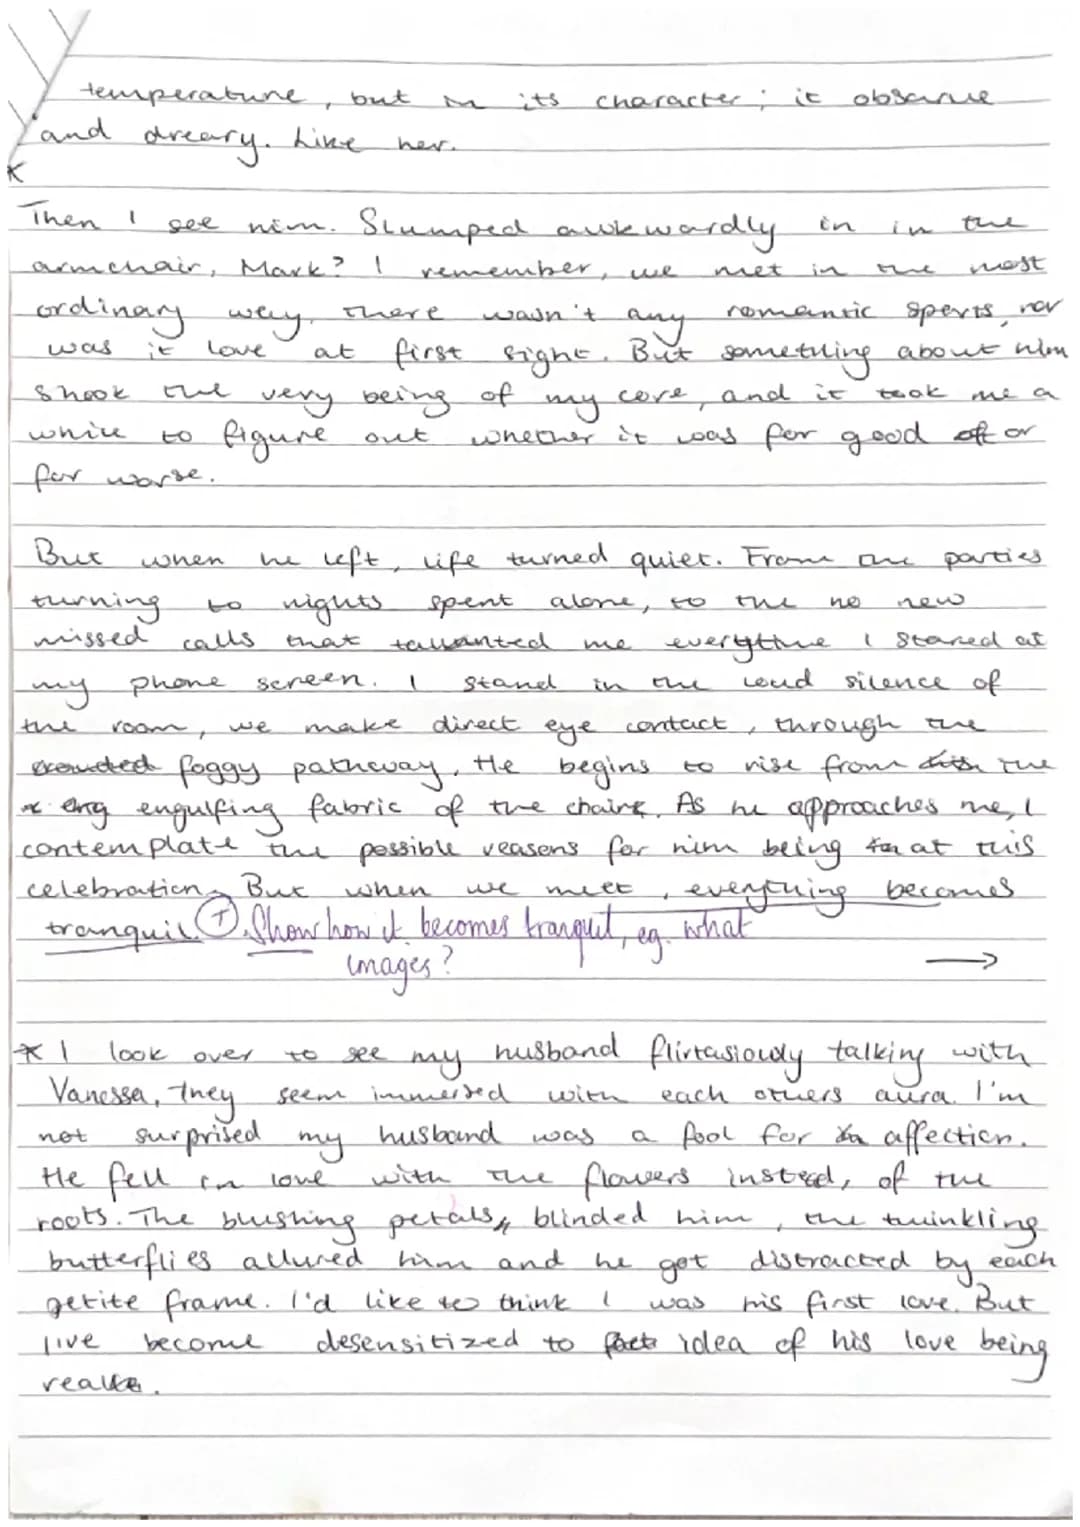 temperature, but in its character; it obscure
and dreary. Like her.
Then I see him. Slumped awkwardly in in the
armchair, Mark? I remember, we met in the most
ordinary way, there wasn't any romantic sperts, nor
was it love at first sight. But something about him
shook the very being of my core, and it took me a
while to figure out whether it was for good or
for worse.
But when he left, life turned quiet. From the parties
turning to nights spent alone, to the no new
missed calls that me everytime I stared at
my phone screen. I stand in the loud silence of
the room, we make direct eye contact, through the
crowded foggy pathway. He begins to rise from the
eng engulfing fabric of the chair. As he approaches me, I
contemplate the possible reasons for him being at this
celebration. But when we meet, everything becomes
tranquil. (T). Show how it becomes tranquil, eg. what
images?
* I look over to see my husband flirtasiously talking with
Vanessa, They seem immersed with each others aura. I'm
not surprised my husband was a fool for affection.
He fell in love with the flowers instead, of the
roots. The blushing petals, blinded him, the twinkling
butterflies allured him and he got distracted by each
petite frame. I'd like to think I was his first love. But
I've become desensitized to idea of his love being